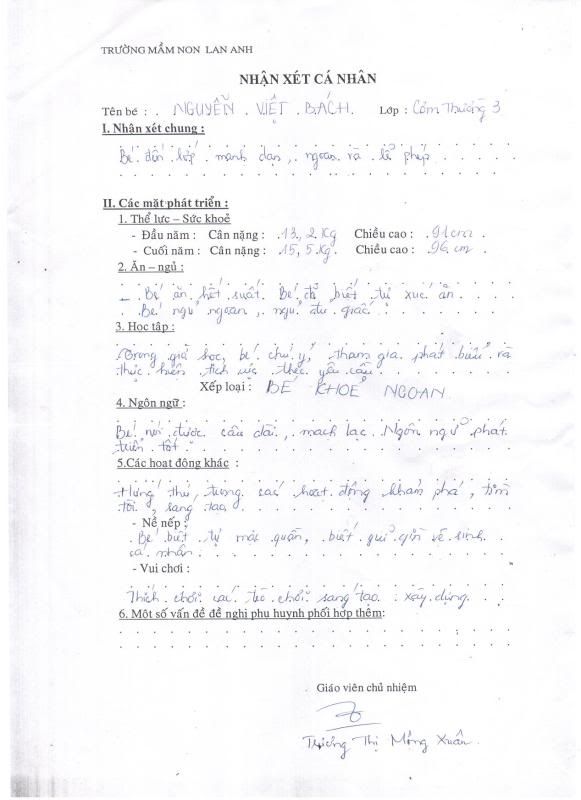 TRƯỜNG MẦM NON LAN ANH
NHẬN XÉT CÁ NHÂN
Tên bé : NGUYỄN VIỆT BÁCH. Lớp : Cơm Thường 3
I. Nhận xét chung :
Bé đến lớp mạnh dạn, ngoan và lễ phép
II. Các mặt phát triển :
1. Thể lực – Sức khoẻ
- Đầu năm : Cân nặng : 13,2 Kg Chiều cao : 91cm
- Cuối năm : Cân nặng : 15,5 Kg. Chiều cao : 96 cm
2. Ăn – ngủ :
_ Bé ăn hết suất. Bé đã biết tự xúc ăn
Bé ngủ ngoan, ngủ đủ giấc
3. Học tập :
Trong giờ học, bé chú ý, tham gia phát biểu và
thực hiện tích cực theo yêu cầu.
Xếp loại : BÉ KHOẺ NGOAN
4. Ngôn ngữ :
Bé nói được câu dài, mạch lạc. Ngôn ngữ phát
triển tốt
5.Các hoạt động khác :
Hứng thú, trong các hoạt động khám phá, tìm
tòi, sáng tạo
- Nề nếp :
Bé biết tự mặc quần, biết giữ gìn vệ sinh
cá nhân
- Vui chơi :
Thích chơi các trò chơi sáng tạo xây dựng
6. Một số vấn đề đề nghị phụ huynh phối hợp thêm:
Giáo viên chủ nhiệm
Trương Thị Mông Xuân